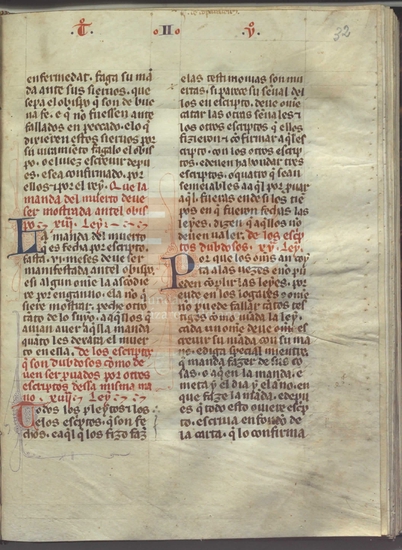 T II V
32
enfermedar. faga su mā
da ante sus sieruos. que
sepa el obispo q̄ son de bue
na fe. e q̄ no fuessen ante
fallados en peccado. e lo q̄
dixieren estos sieruos por
su iuramiento fagalo el obis
po. o el iuez escreuir depu
es. e sea confirmado. por
ellos e por el rey. Que la
manda del muerto deue
ser mostrada antel obis
po. xiii. Ley.
La manda del muerto
q̄ es fecha por escripto.
fasta. vi. meses deue ser
manifestada antel obispo.
e si algun ome la ascōdie
re por enganno. e la nō q̄
siere mostrar. peche otro
tāto de lo suyo. a aq̄llos q̄
auian auer aq̄lla manda
quāto les dexara el muer
to en ella. de los escriptos
q̄ son dubdosos cōmo de
uen ser puados por otros
escriptos dessa misma ma
no. xiiii. Ley.
Todos los pleytos e los
e los escptos. q̄ son fe
chos. e aq̄l q̄ los fizo faz
e las testimonias son mu
ertas. si paresce su señal de
los en escripto. deue ome
catar las otras señales e
los otros escriptos q̄ ellos
fizieron e confirmar aq̄l es
cripto. con los otros escrip
tos. e deuen ha bondar tres
escriptos. o quatro q̄ sean
semeiables a aq̄l por puar
aq̄l. fueras ende si los tie
pos en q̄ fueron fechas las
leyes. dizen q̄ aq̄llos nō
deuen ualer. de los escp
tos dubdosos. xv. Ley.
Por que los oms an coy
ta a las uezes e no pu
eden cōplir las leyes. por
ende en los logares o ome
no puede fallar tātos tes
tigos cōmo māda la ley.
cada un ome deue ome es
creuir su māda con su ma
no. e diga special mientre
q̄ manda fazer de sus co
sas. o a q̄en la manda. e
meta y el dia y el anno. en
que faze la māda. e depu
es q̄ todo esto ouiere escp
to. escriua en fondō de
la carta. q̄ lo confirma